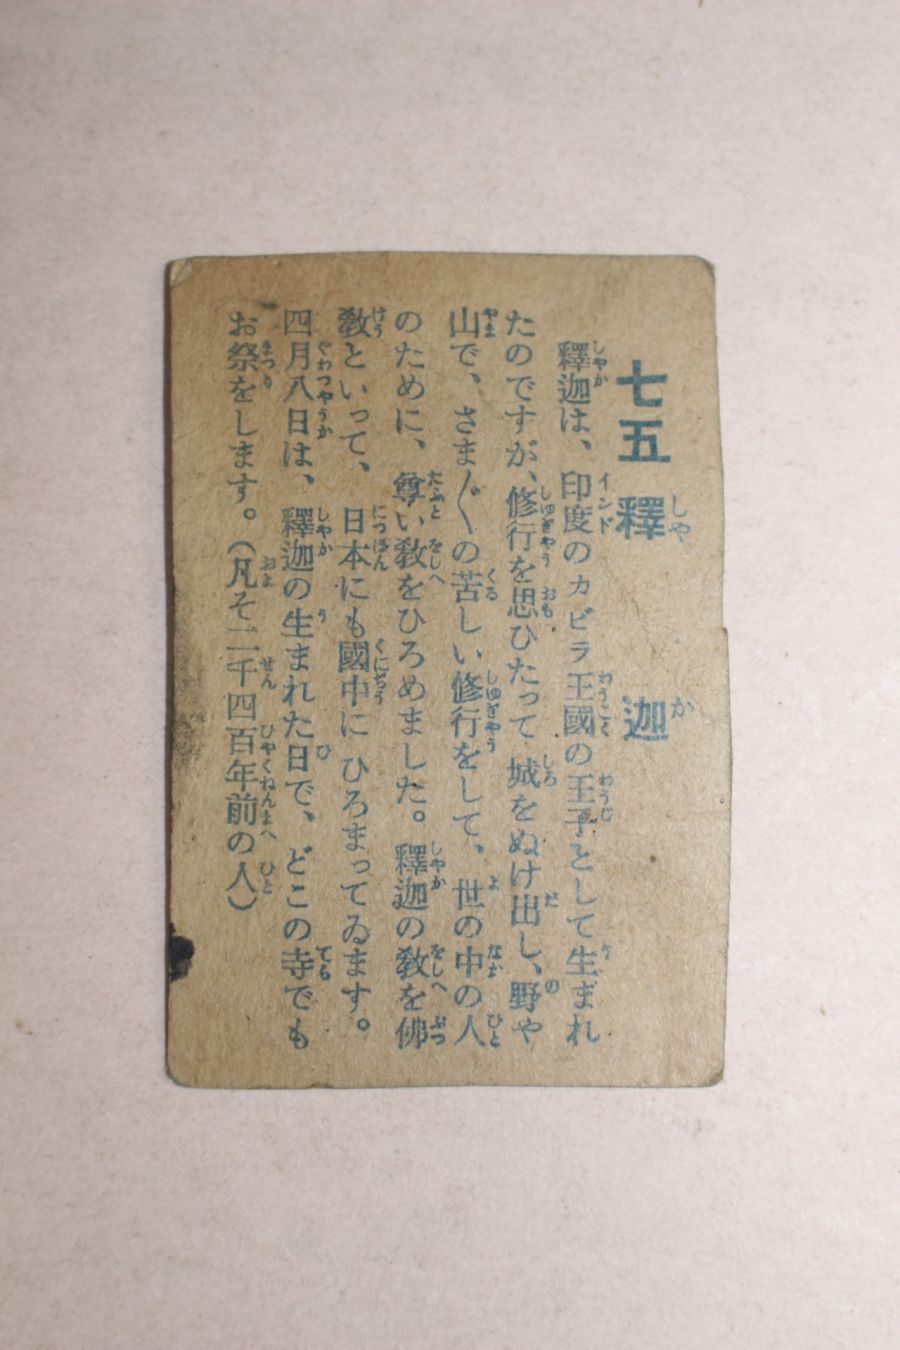 七五 釋迦
釋迦は、印度のカビラ王國の王子として生まれ
たのですが、修行を思ひたって城をぬけ出し、野や
山で、さま〴〵の苦しい修行をして、世の中の人
のために、尊い敎をひろめました。釋迦の敎を佛
敎といって、日本にも國中にひろまってゐます。
四月八日は、釋迦の生まれた日で、どこの寺でも
お祭をします。(凡そ二千四百年前の人)